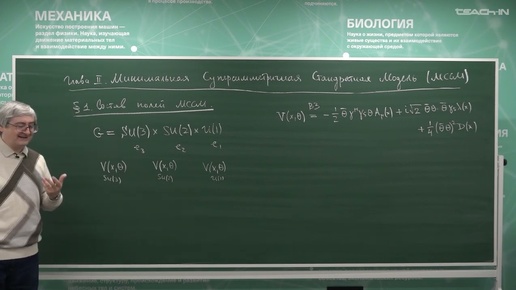 МЕХАНИКА
Искусство построения машин —
раздел физики. Наука, изучающая
движение материальных тел
и взаимодействие между ними.
teach-in
БИОЛОГИЯ
Наука о жизни, предметом которой являются
живые существа и их взаимодействие
с окружающей средой.
Глава II. Минимальная Суперсимметричная Стандартная Модель (МССМ)
§1 Состав полей МССМ
G = SU(3) × SU(2) × U(1)
e₃ e₂ e₁
V(x,θ) V(x,θ) V(x,θ)
SU(3) SU(2) U(1)
V(x,θ) =ᴮᶾ -1/2 θ̄γ^μγ₅θ A_μ(x) + i√2 θ̄θ·θ̄γ₅λ(x)
+ 1/4 (θ̄θ)² D(x)